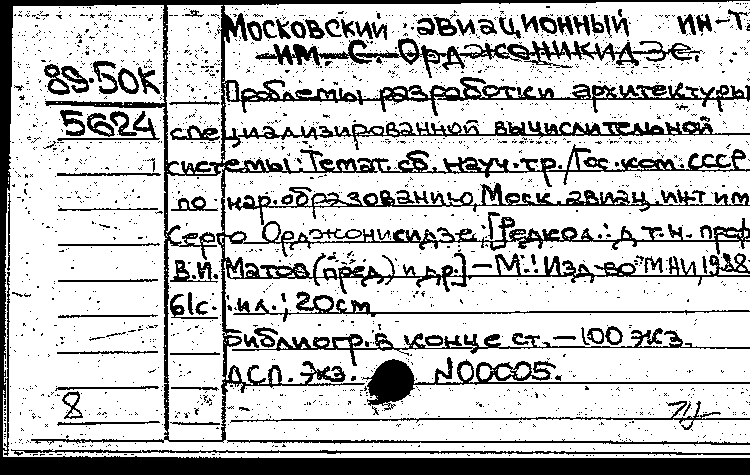 Московский авиационный ин-т
им. С. Орджоникидзе.
89-50К
5624
Проблемы разработки архитектуры
специализированной вычислительной
системы: Темат. сб. науч. тр. / Гос. ком. СССР
по нар. образованию, Моск. авиац. ин-т им.
Серго Орджоникидзе; [Редкол.: д.т.н. проф
В.И. Матов (пред.) и др.] - М.: Изд-во МАИ, 1988
61с. : ил.; 20см
Библиогр. в конце ст. - 100 экз.
ДСП. Экз. N00005.
8